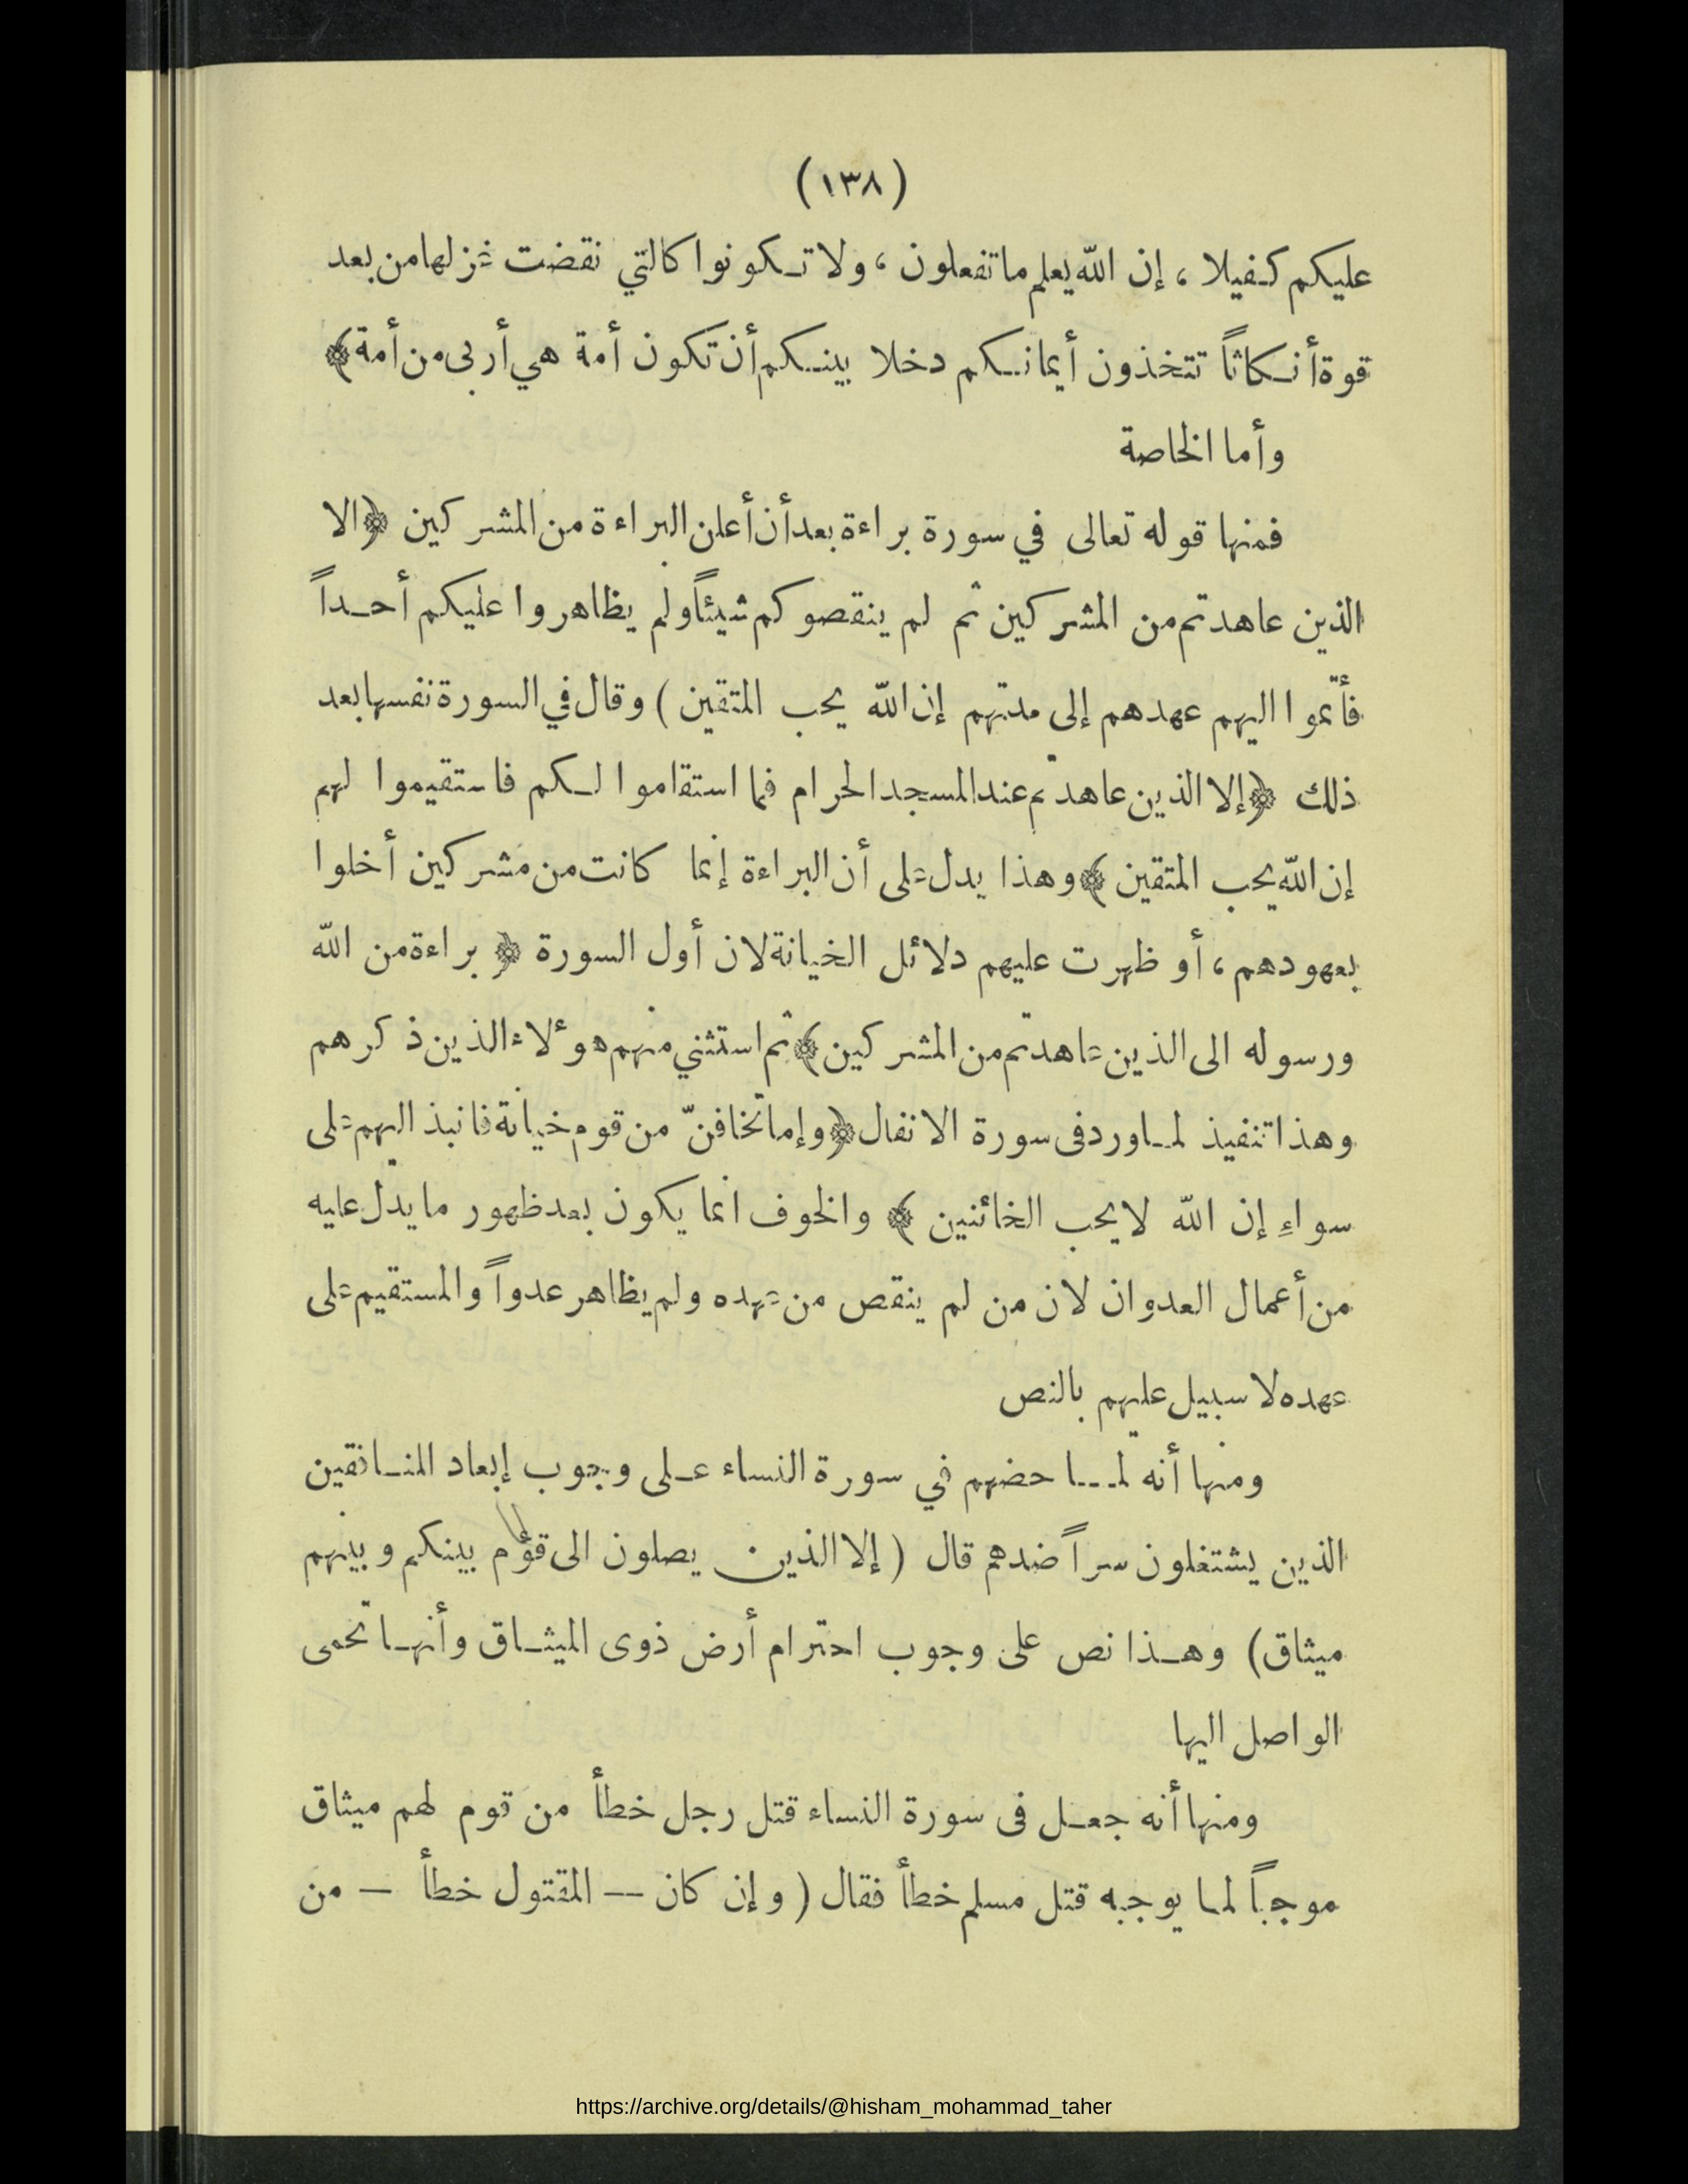 (١٣٨)
عليكم كفيلا ، إن الله يعلم ما تفعلون ، ولا تكونوا كالتي نقضت غزلها من بعد
قوة أنكاثاً تتخذون أيمانكم دخلا بينكم أن تكون أمة هي أربى من أمة﴾
وأما الخاصة
فمنها قوله تعالى في سورة براءة بعد أن أعلن البراءة من المشركين ﴿الا
الذين عاهدتم من المشركين ثم لم ينقصوكم شيئاً ولم يظاهروا عليكم أحداً
فأتموا اليهم عهدهم إلى مدتهم إن الله يحب المتقين ) وقال في السورة نفسها بعد
ذلك ﴿إلا الذين عاهدتم عند المسجد الحرام فما استقاموا لكم فاستقيموا لهم
إن الله يحب المتقين ﴾ وهذا يدل على أن البراءة إنما كانت من مشركين أخلوا
بعهودهم ، أو ظهرت عليهم دلائل الخيانة لان أول السورة ﴿ براءة من الله
ورسوله الى الذين عاهدتم من المشركين﴾ ثم استثنى منهم هؤلاء الذين ذكرهم
وهذا تنفيذ لما ورد فى سورة الانفال ﴿وإما تخافنّ من قوم خيانة فانبذ اليهم على
سواءِ إن الله لا يحب الخائنين ﴾ والخوف انما يكون بعد ظهور ما يدل عليه
من أعمال العدوان لان من لم ينقص من عهده ولم يظاهر عدواً والمستقيم على
عهده لا سبيل عليهم بالنص
ومنها أنه لما حضهم في سورة النساء على وجوب إبعاد المنافقين
الذين يشتغلون سراً ضدهم قال ( إلا الذين يصلون الى قوم بينكم وبينهم
ميثاق) وهذا نص على وجوب احترام أرض ذوى الميثاق وأنها تحمى
الواصل اليها
ومنها أنه جعل فى سورة النساء قتل رجل خطأ من قوم لهم ميثاق
موجباً لما يوجبه قتل مسلم خطأ فقال ( وإن كان — المقتول خطأ — من
https://archive.org/details/@hisham_mohammad_taher